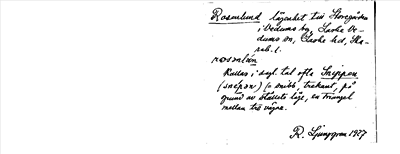 Rosenlund lägenhet till Storegården
i Vedums by, Laske Ve-
dums sn, Laske hd, Ska-
rab. l.
rosenlún
Kallas i dagl. tal ofta Snippen
(snépən) (= snibb, trekant, på
grund av ställets läge, en triangel
mellan två vägar.
R. Ljunggren 1927